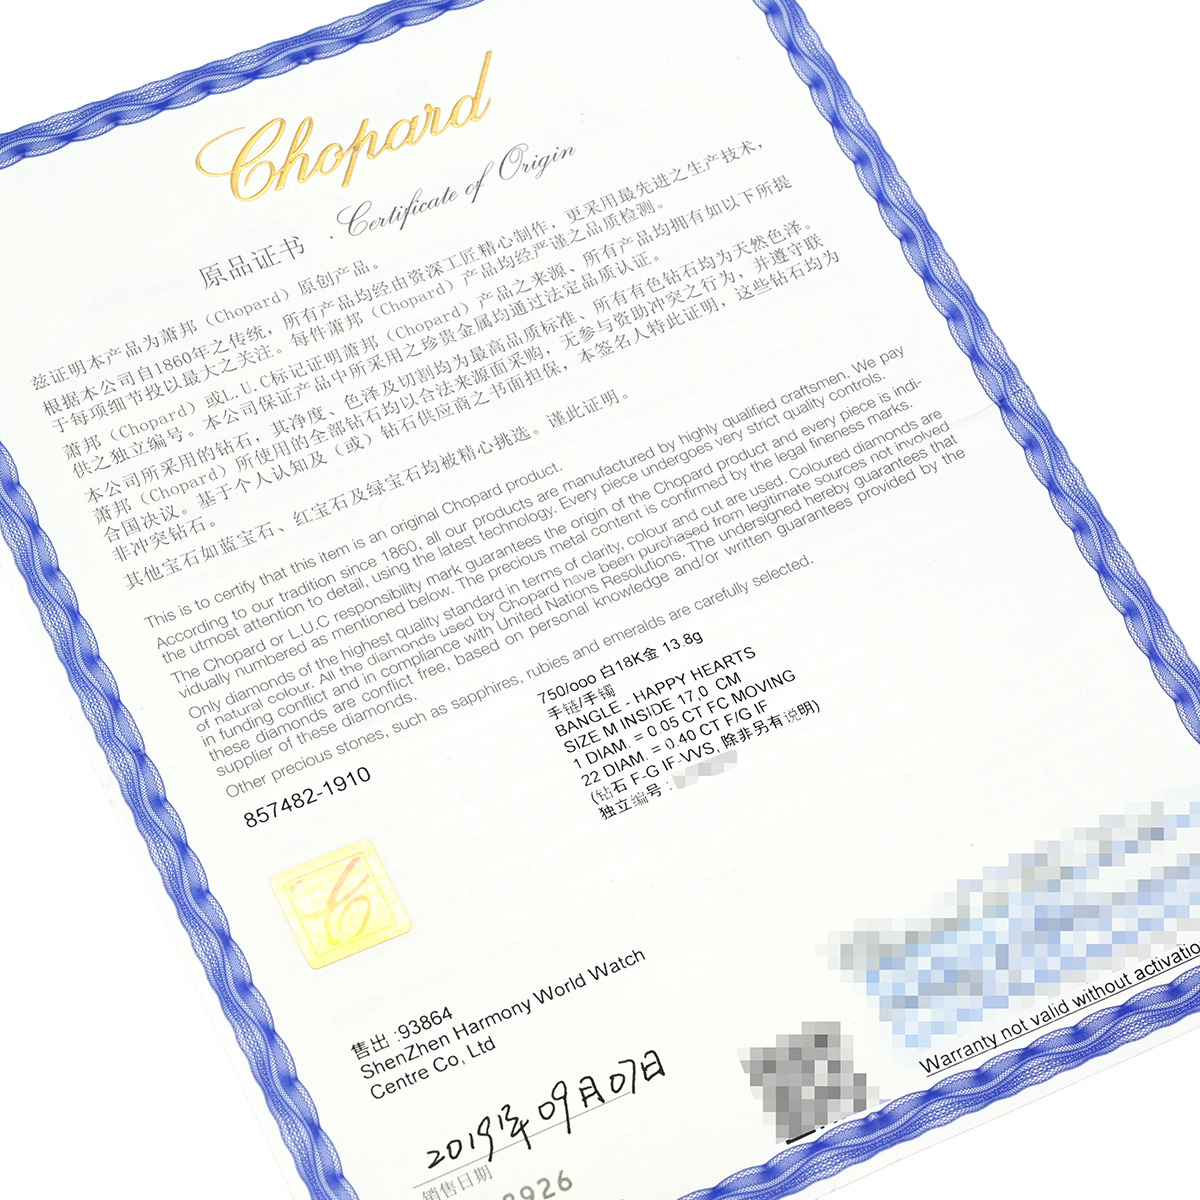 Chopard
原品证书 . Certificate of Origin
兹证明本产品为萧邦（Chopard）原创产品。
根据本公司自1860年之传统，所有产品均经由资深工匠精心制作，更采用最先进之生产技术，
于每项细节投以最大之关注。每件萧邦（Chopard）产品均经严谨之品质检测。
萧邦（Chopard）或L.U.C标记证明萧邦（Chopard）产品之来源、所有产品均拥有如以下所提
供之独立编号。本公司保证产品中所采用之珍贵金属均通过法定品质认证。
本公司所采用的钻石，其净度、色泽及切割均为最高品质标准、所有有色钻石均为天然色泽。
萧邦（Chopard）所使用的全部钻石均以合法来源面采购，无参与资助冲突之行为，并遵守联
合国决议。基于个人认知及（或）钻石供应商之书面担保，本签名人特此证明，这些钻石均为
非冲突钻石。
其他宝石如蓝宝石、红宝石及绿宝石均被精心挑选。谨此证明。
This is to certify that this item is an original Chopard product.
According to our tradition since 1860, all our products are manufactured by highly qualified craftsmen. We pay
the utmost attention to detail, using the latest technology. Every piece undergoes very strict quality controls.
The Chopard or L.U.C responsibility mark guarantees the origin of the Chopard product and every piece is indi-
vidually numbered as mentioned below. The precious metal content is confirmed by the legal fineness marks.
Only diamonds of the highest quality standard in terms of clarity, colour and cut are used. Coloured diamonds are
of natural colour. All the diamonds used by Chopard have been purchased from legitimate sources not involved
in funding conflict and in compliance with United Nations Resolutions. The undersigned hereby guarantees that
these diamonds are conflict free, based on personal knowledge and/or written guarantees provided by the
supplier of these diamonds.
Other precious stones, such as sapphires, rubies and emeralds are carefully selected.
857482-1910
750/ooo 白18K金 13.8g
手链/手镯
BANGLE - HAPPY HEARTS
SIZE M INSIDE 17,0 CM
1 DIAM. = 0.05 CT FC MOVING
22 DIAM. = 0.40 CT F/G IF
(钻石 F-G IF-VVS, 除非另有说明)
独立编号 :
售出 :93864
ShenZhen Harmony World Watch
Centre Co, Ltd
2019年09月07日
销售日期
Warranty not valid without activatio